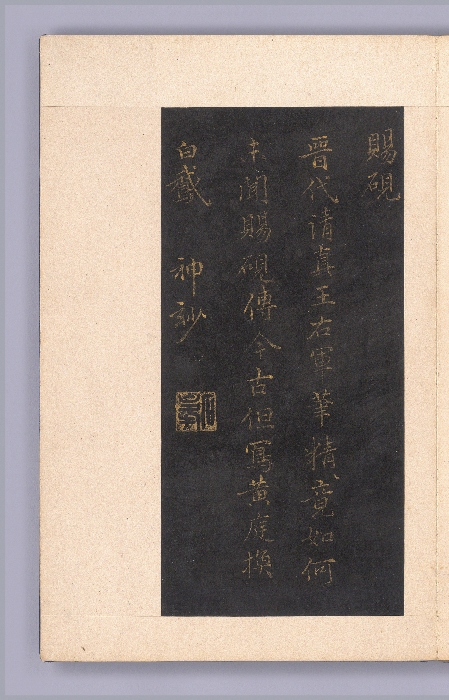 賜硯
晉代清真王右軍筆精竟如何
未聞賜硯傳今古但寫黃庭換
白鵞　神玅